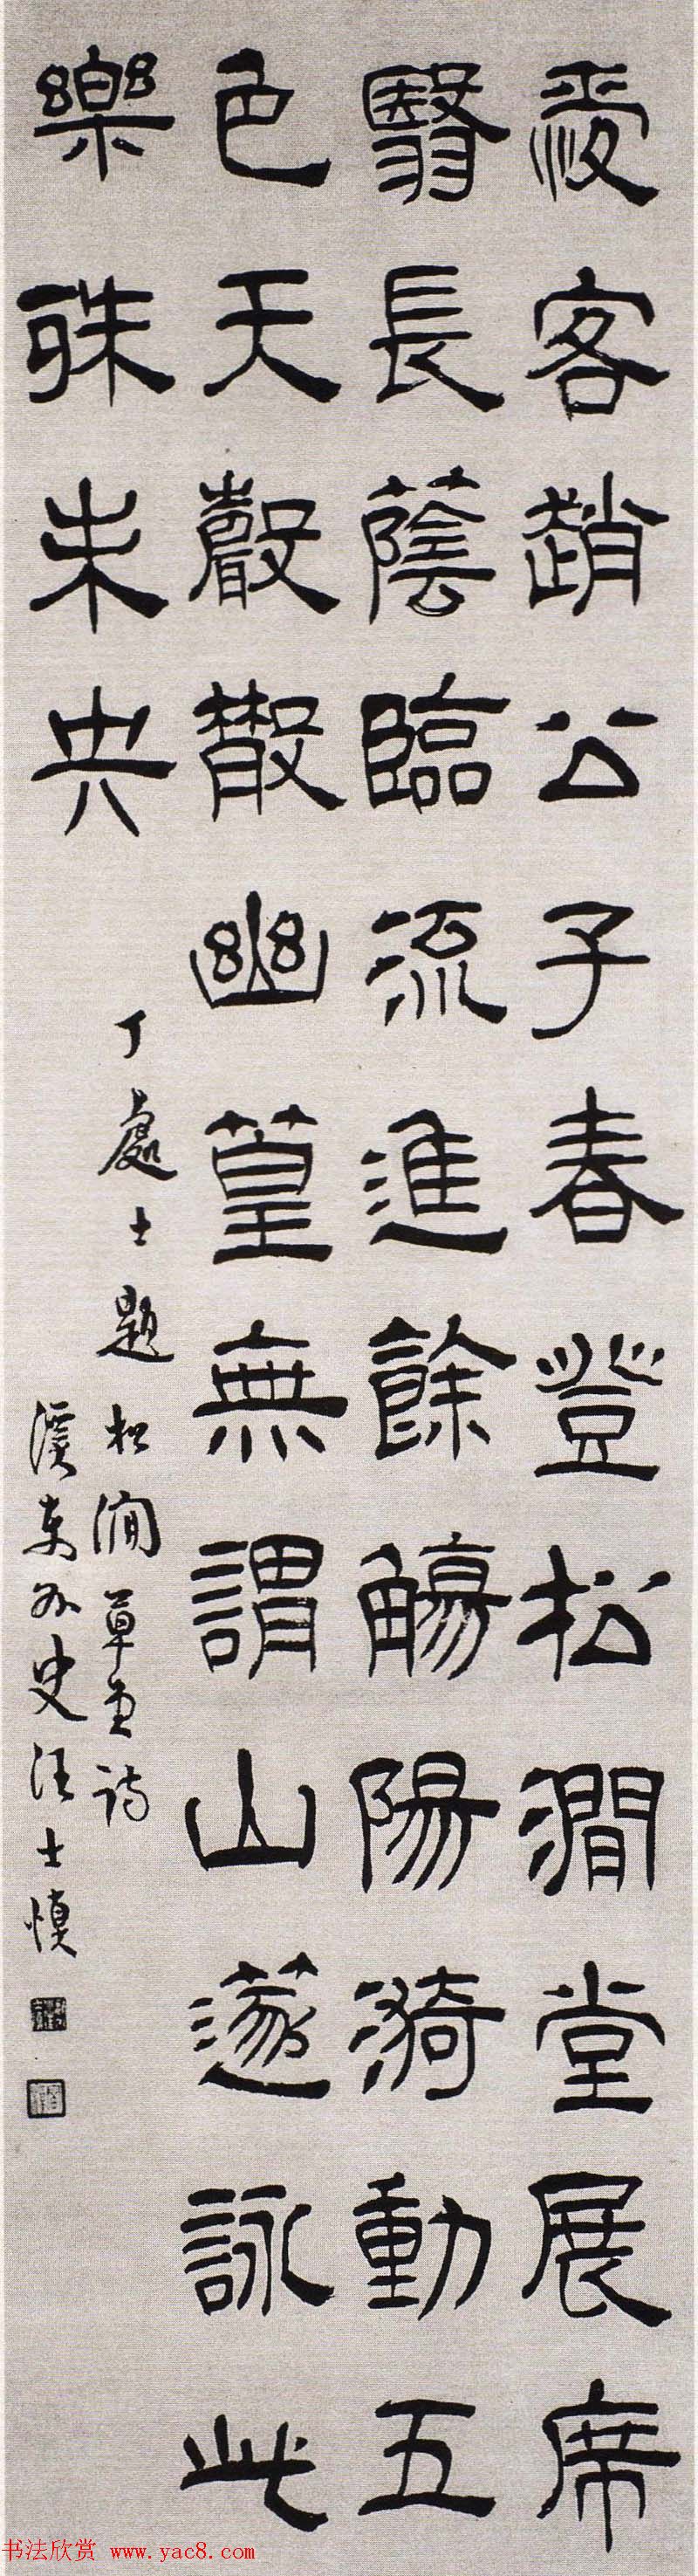 愛客趙公子春登松澗堂展席
翳長蔭臨流進餘觴陽漪動五
色天聲散幽篁無謂山遂詠此
樂殊未央
丁處士題松澗草堂詩
溪東外史汪士慎
书法欣赏 www.yac8.com